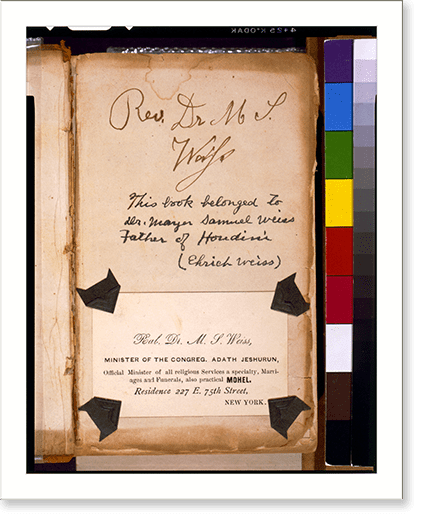 4×25 KODAK
Rev. Dr M S.
Weiss
This book belonged to
Dr. Mayer Samuel Weiss
Father of Houdini
(Ehrich Weiss)
Rab. Dr. M. S. Weiss,
MINISTER OF THE CONGREG. ADATH JESHURUN,
Official Minister of all religious Services a specialty, Marri-
ages and Funerals, also practical MOHEL.
Residence 227 E. 75th Street,
NEW YORK.